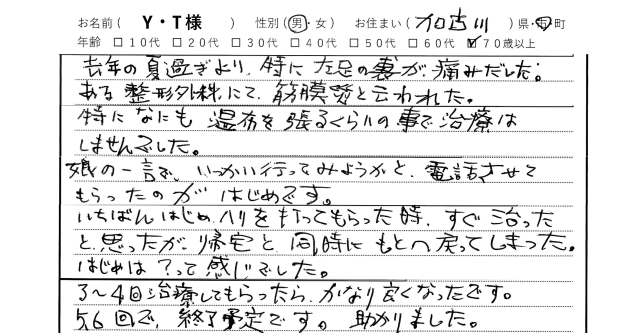 お名前( Y・T様 ) 性別(男・女) お住まい( 加古川 )県・市町
年齢 □10代 □20代 □30代 □40代 □50代 □60代 ☑70歳以上
去年の夏過ぎより、特に左足の裏が痛みだした。
ある整形外科にて、筋膜炎と云われた。
特になにも湿布を張るくらいの事で治療は
しませんでした。
娘の一言で、いっかい行ってみようかと、電話させて
もらったのが はじめです。
いちばんはじめ、ハリを打ってもらった時、すぐ治った
と思ったが、帰宅と同時にもとへ戻ってしまった。
はじめは?って感じでした。
3〜4回治療してもらったら、かなり良くなったです。
5.6回で、終了予定です。助かりました。